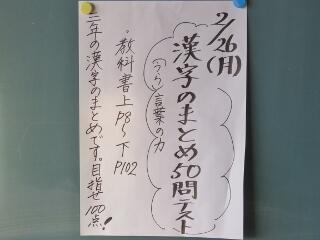 2/26(月)
漢字のまとめ50問テスト
(うら)言葉の力
・教科書上P8〜下P102
二年の漢字のまとめです。目指せ100点!